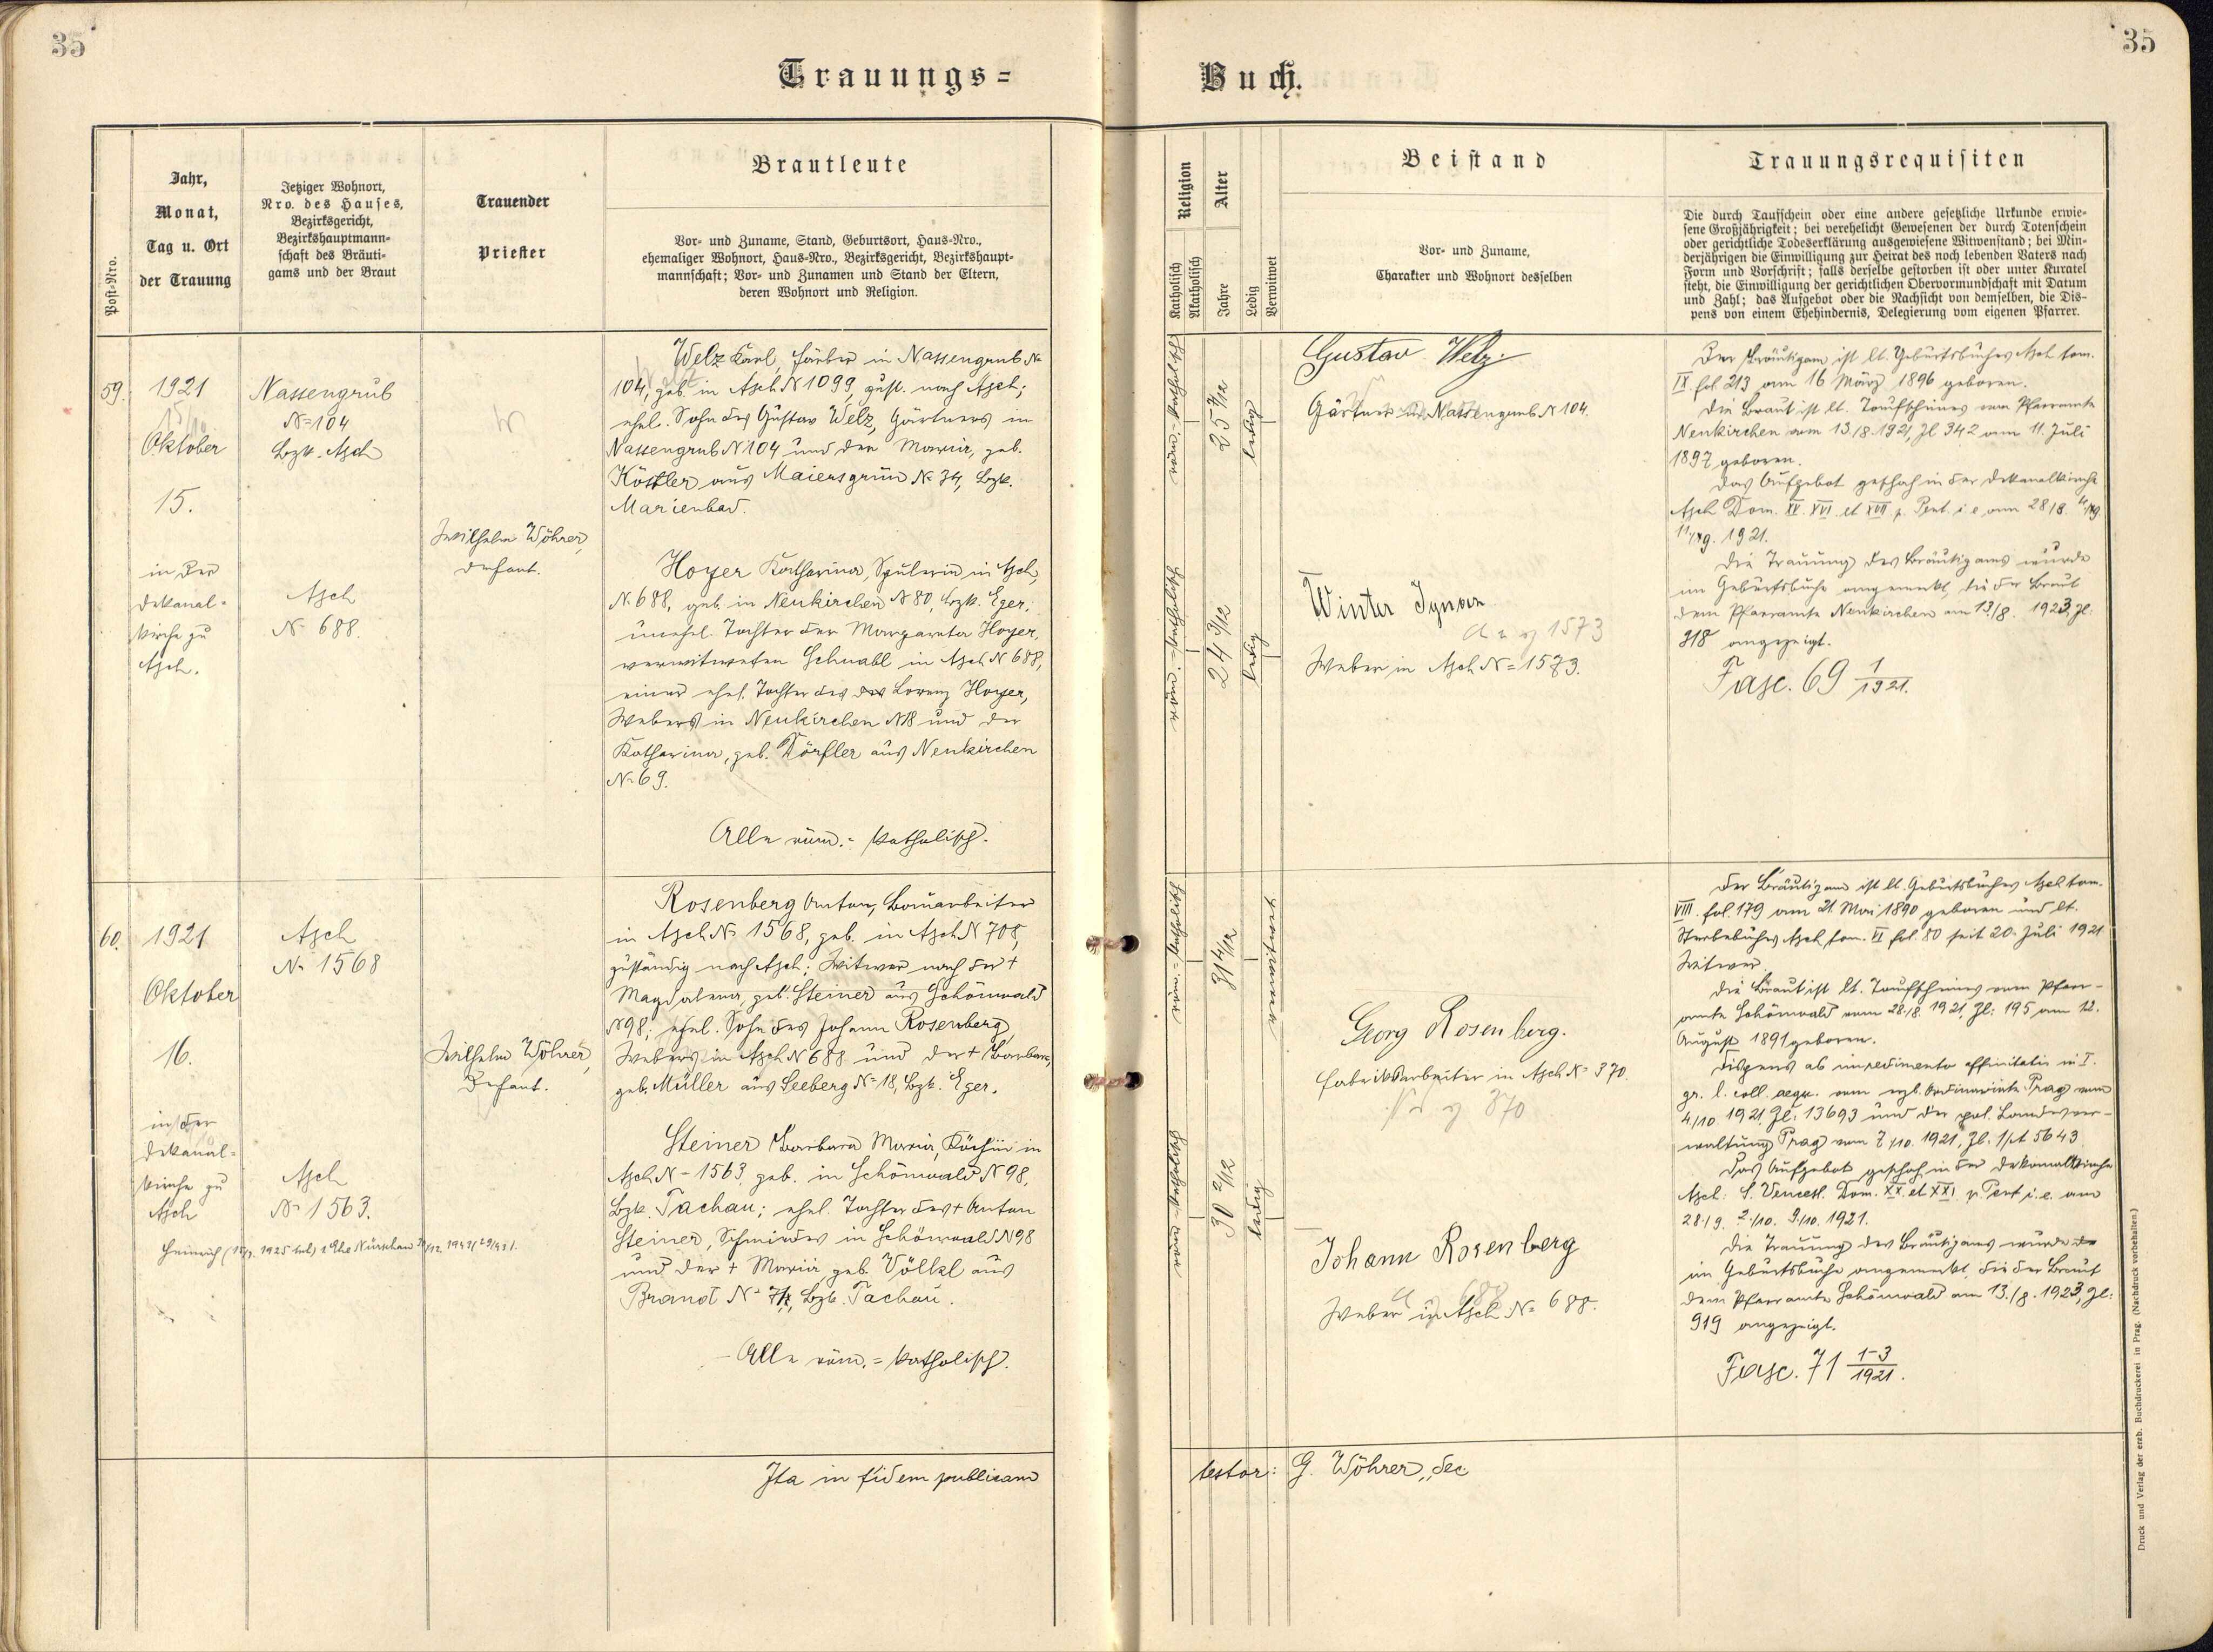 35
35
Trauungs=
Buch.
Post-Nro.
Jahr,
Monat,
Tag u. Ort
der Trauung
Jetziger Wohnort,
Nro. des Hauses,
Bezirksgericht,
Bezirkshauptmann-
schaft des Bräuti-
gams und der Braut
Trauender
Priester
Brautleute
Vor- und Zuname, Stand, Geburtsort, Haus-Nro.,
ehemaliger Wohnort, Haus-Nro., Bezirksgericht, Bezirkshaupt-
mannschaft; Vor- und Zunamen und Stand der Eltern,
deren Wohnort und Religion.
Religion
Katholisch
Akatholisch
Alter
Jahre
Ledig
Verwitwet
Beistand
Vor- und Zuname,
Charakter und Wohnort desselben
Trauungsrequisiten
Die durch Taufschein oder eine andere gesetzliche Urkunde erwie-
sene Großjährigkeit; bei verehelicht Gewesenen der durch Totenschein
oder gerichtliche Todeserklärung ausgewiesene Witwenstand; bei Min-
derjährigen die Einwilligung zur Heirat des noch lebenden Vaters nach
Form und Vorschrift; falls derselbe gestorben ist oder unter Kuratel
steht, die Einwilligung der gerichtlichen Obervormundschaft mit Datum
und Zahl; das Aufgebot oder die Nachsicht von demselben, die Dis-
pens von einem Ehehindernis, Delegierung vom eigenen Pfarrer.
59.
1921
15/10
Oktober
15.
in der
Dekanal=
kirche zu
Asch.
Nassengrub
N=104
Bzk. Asch
Asch
N= 688.
Wilhelm Wöhrer,
Dechant.
Welz Karl, Färber in Nassengrub N=
104, geb. in Asch N 1099, zust. nach Asch;
ehel. Sohn des Gustav Welz, Gärtners in
Nassengrub N 104 und der Maria, geb.
Köstler aus Maiersgrün N= 34, Bzk.
Marienbad.
Hoyer Katharina, Spulerin in Asch,
N. 688, geb. in Neukirchen N 80, Bzk. Eger,
unehel. Tochter der Margareta Hoyer,
verwitweten Schnabl in Asch N 688,
einer ehel. Tochter des Lorenz Hoyer,
Webers in Neukirchen N 18 und der
Katharina, geb. Dörfler aus Neukirchen
N= 69.
Alle röm.= katholisch.
röm.=katholisch
25 7/12
ledig
röm.=katholisch
24 3/12
ledig
Gustav Welz.
Gärtner in Nassengrub N 104.
Winter Ignaz
1573
Weber in Asch N= 1573.
Der Bräutigam ist lt. Geburtsbuches Asch tom.
IX. fol. 213 am 16 März 1896 geboren.
Die Braut ist lt. Taufscheines vom Pfarramte
Neukirchen vom 13./8. 1921, Zl 342 am 11. Juli
1897 geboren.
Das Aufgebot geschah in der Dekanalkirche
Asch Dom. XV. XVI. et XVII p. Pent. i. e. am 28/8. 4/9
11/9. 1921.
Die Trauung des Bräutigams wurde
im Geburtsbuche angemerkt, die der Braut
dem Pfarramte Neukirchen am 13./8. 1923, Zl.
918 angezeigt.
Fasc. 69 1/1921.
60.
1921
Oktober
16.
in der
Dekanal=
kirche zu
Asch
Asch
N= 1568
Asch
N= 1563.
Wilhelm Wöhrer,
Dechant.
Rosenberg Anton, Bauarbeiter
in Asch N= 1568, geb. in Asch N 708,
zuständig nach Asch; Witwer nach der +
Magdalena, geb. Steiner aus Schönwald
N 98; ehel. Sohn des Johann Rosenberg,
Webers in Asch N 688 und der + Barbara,
geb. Müller aus Seeberg N= 18, Bzk. Eger.
Steiner Barbara Maria, Köchin in
Asch N= 1563, geb. in Schönwald N 98,
Bzk. Tachau; ehel. Tochter des + Anton
Steiner, Schmiedes in Schönwald N 98
und der + Maria, geb. Völkl aus
Brand N= 74, Bzk. Tachau.
Alle röm.= katholisch.
röm.=katholisch
31 4/12
verwitwet
röm.=katholisch
30 2/12
ledig
Georg Rosenberg.
Fabriksarbeiter in Asch N= 370.
370
Johann Rosenberg
688
Weber in Asch N= 688.
Der Bräutigam ist lt. Geburtsbuches Asch tom.
VIII. fol. 179 am 21. Mai 1890 geboren und lt.
Sterbebuches Asch tom. VI fol. 80 seit 20. Juli 1921
Witwer.
Die Braut ist lt. Taufscheines vom Pfarr-
amte Schönwald vom 28./8. 1921, Zl: 195 am 12.
August 1891 geboren.
Dispens ab impedimento affinitatis in I.
gr. l. coll. aequ. vom erzb. Ordinariate Prag vom
4/10. 1921, Zl: 13693 und der pol. Landesver-
waltung Prag vom 7/10. 1921, Zl. 5643
Das Aufgebot geschah in der Dekanalkirche
Asch: S. Vencesl. Dom. XX. et XXI. p. Pent i. e. am
28./9. 2./10. 9./10. 1921.
Die Trauung des Bräutigams wurde
im Geburtsbuche angemerkt, die der Braut
dem Pfarramte Schönwald am 13./8. 1923, Zl:
919 angezeigt.
Fasc. 71 1-3/1921.
Ita in fidem publicam
testor: G. Wöhrer, Dec.
Druck und Verlag der erzb. Buchdruckerei in Prag. (Nachdruck vorbehalten.)